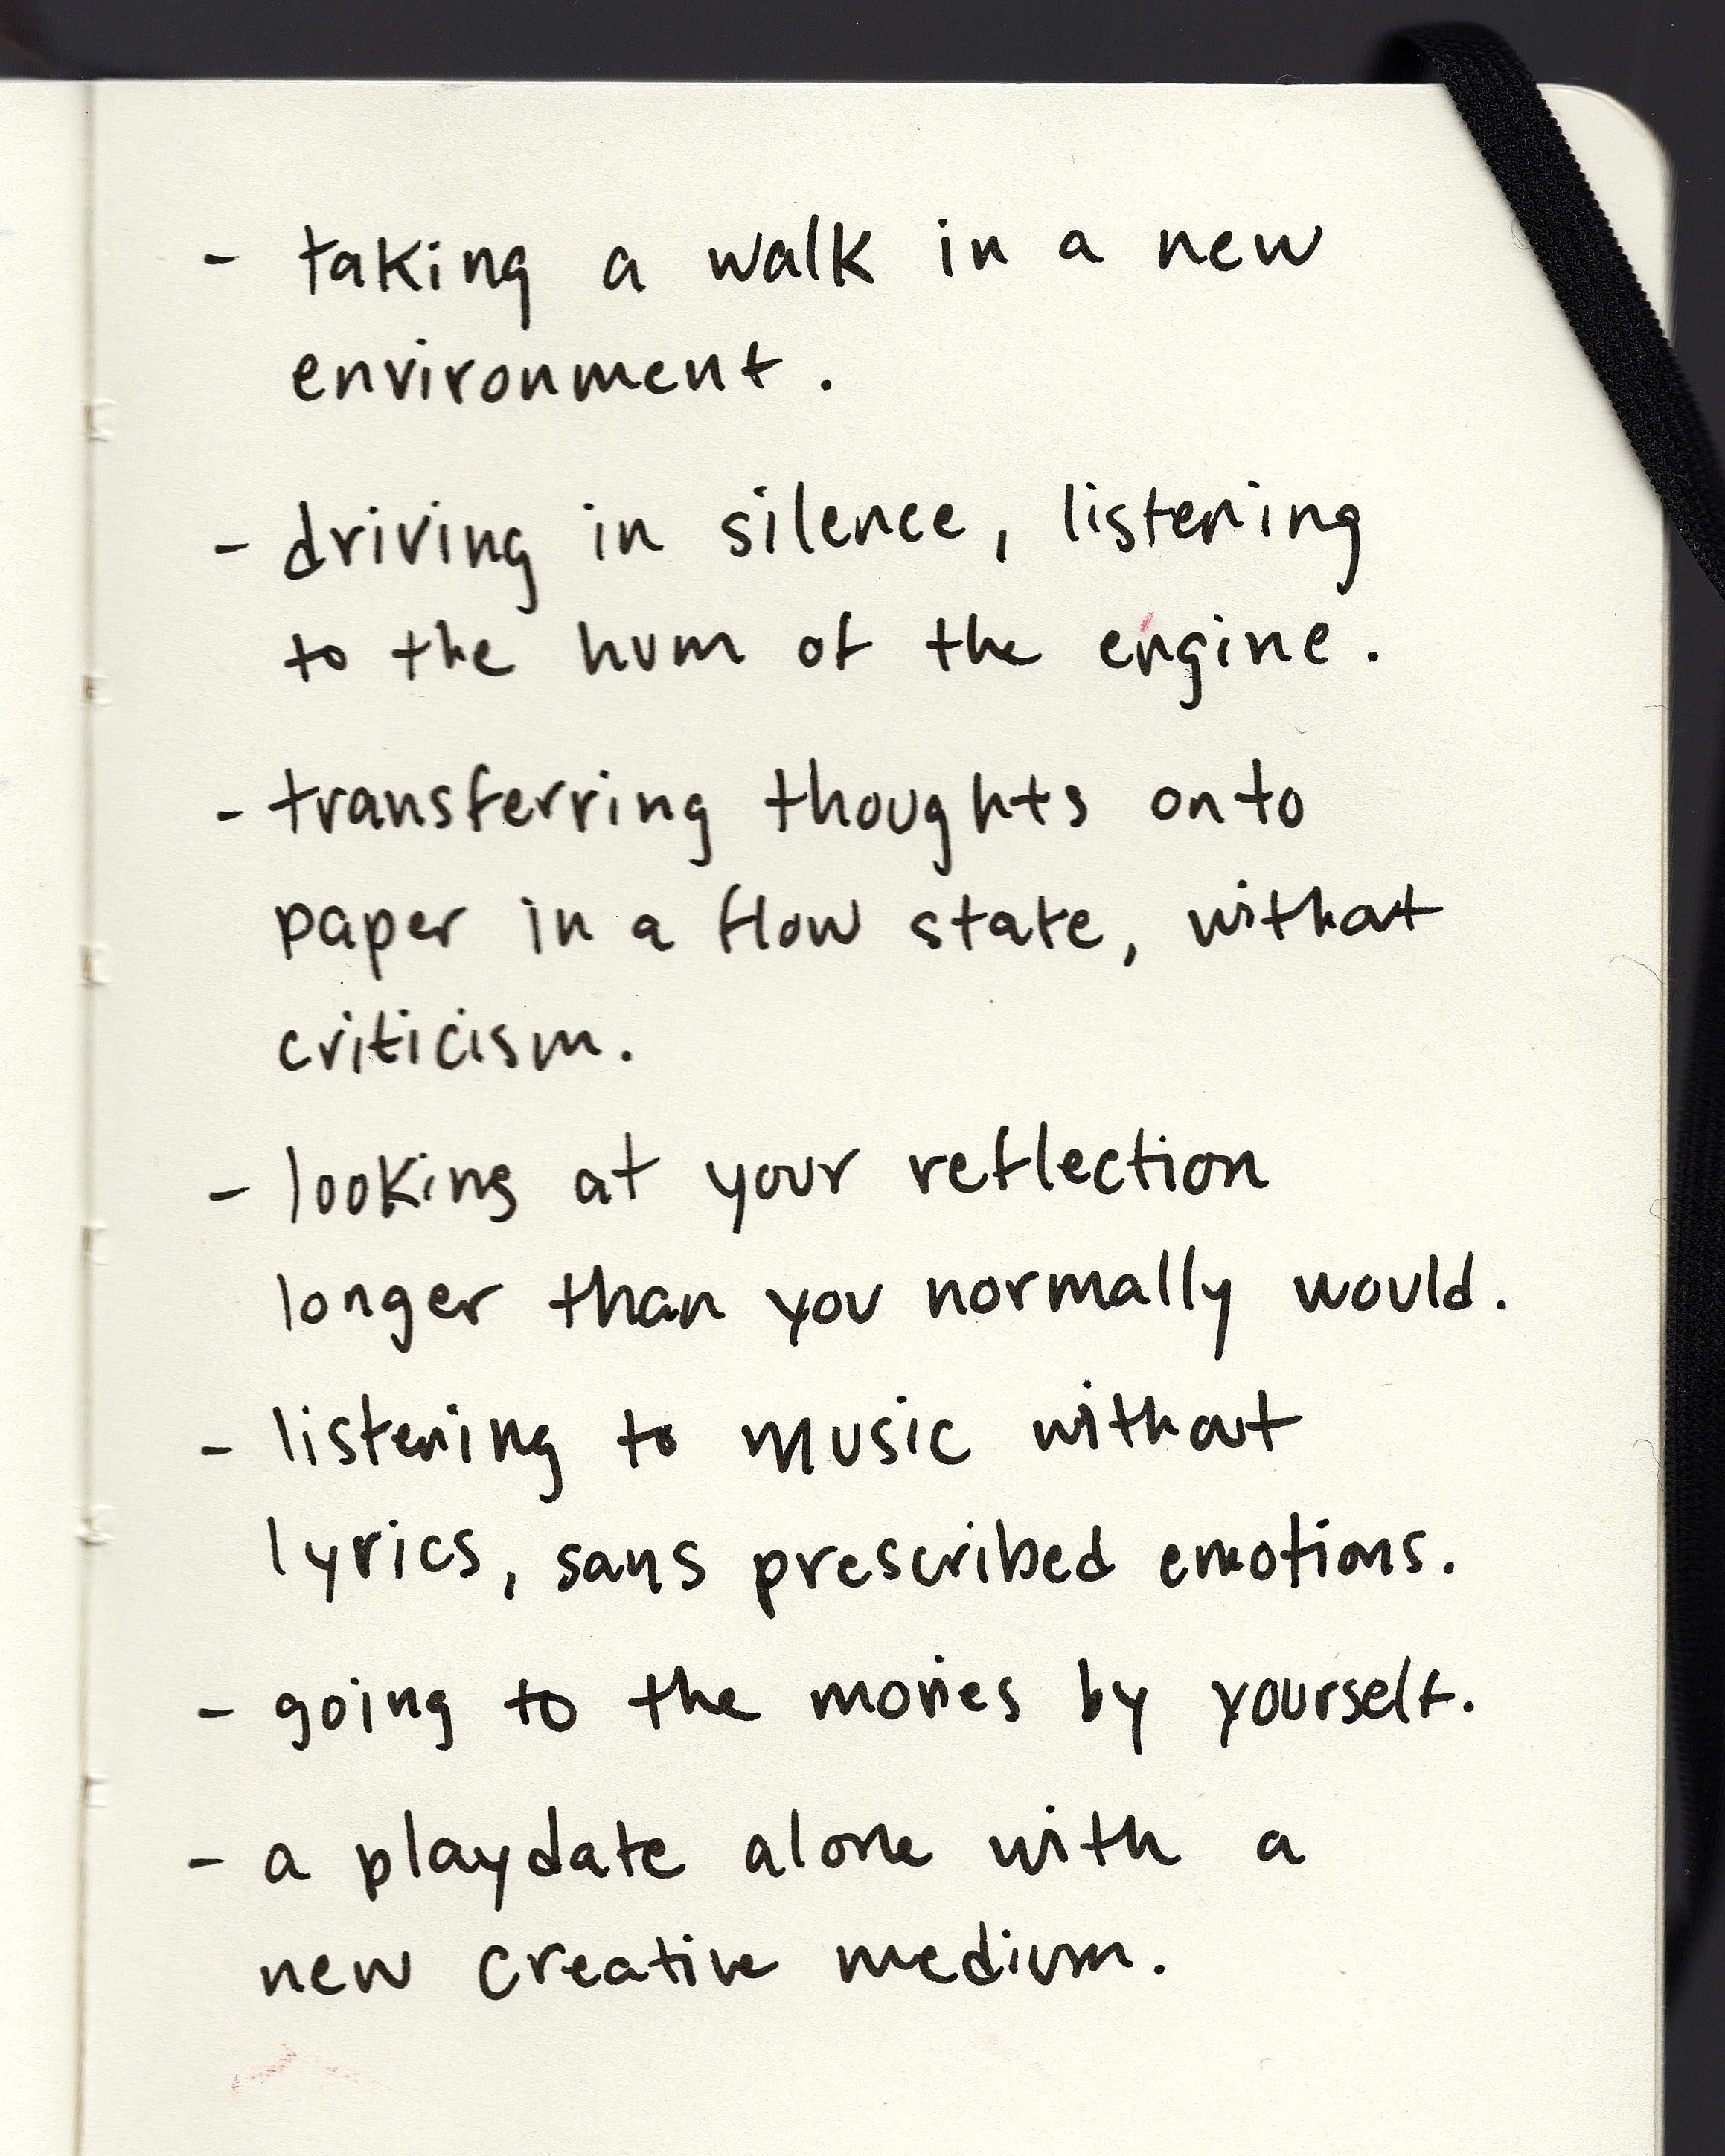 - taking a walk in a new
environment.
- driving in silence, listening
to the hum of the engine.
- transferring thoughts onto
paper in a flow state, without
criticism.
- looking at your reflection
longer than you normally would.
- listening to music without
lyrics, sans prescribed emotions.
- going to the movies by yourself.
- a playdate alone with a
new creative medium.